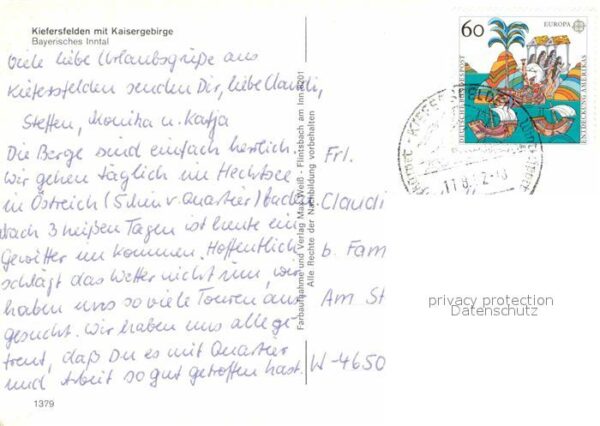 Kiefersfelden mit Kaisergebirge
Bayerisches Inntal
Viele liebe Urlaubsgrüße aus
Kiefersfelden senden Dir, liebe Claudi,
Steffen, Monika u. Katja
Die Berge sind einfach herrlich.
Wir gehen täglich im Hechtsee
in Östreich (5 km v. Quartier) baden.
Nach 3 heißen Tagen ist heute ein
Gewitter im Kommen. Hoffentlich
schlägt das Wetter nicht um, wir
haben uns so viele Touren aus
gesucht. Wir haben uns alle ge
freut, daß Du es mit Quartier
und Arbeit so gut getroffen hast.
1379
Farbaufnahme und Verlag Max Weiß - Flintsbach am Inn
Alle Rechte der Nachbildung vorbehalten
60
EUROPA
DEUTSCHE BUNDESPOST
ENTDECKUNG AMERIKAS
KIEFERSFELDEN
Frl.
Claudi
b. Fam
Am St
W-4650
privacy protection
Datenschutz